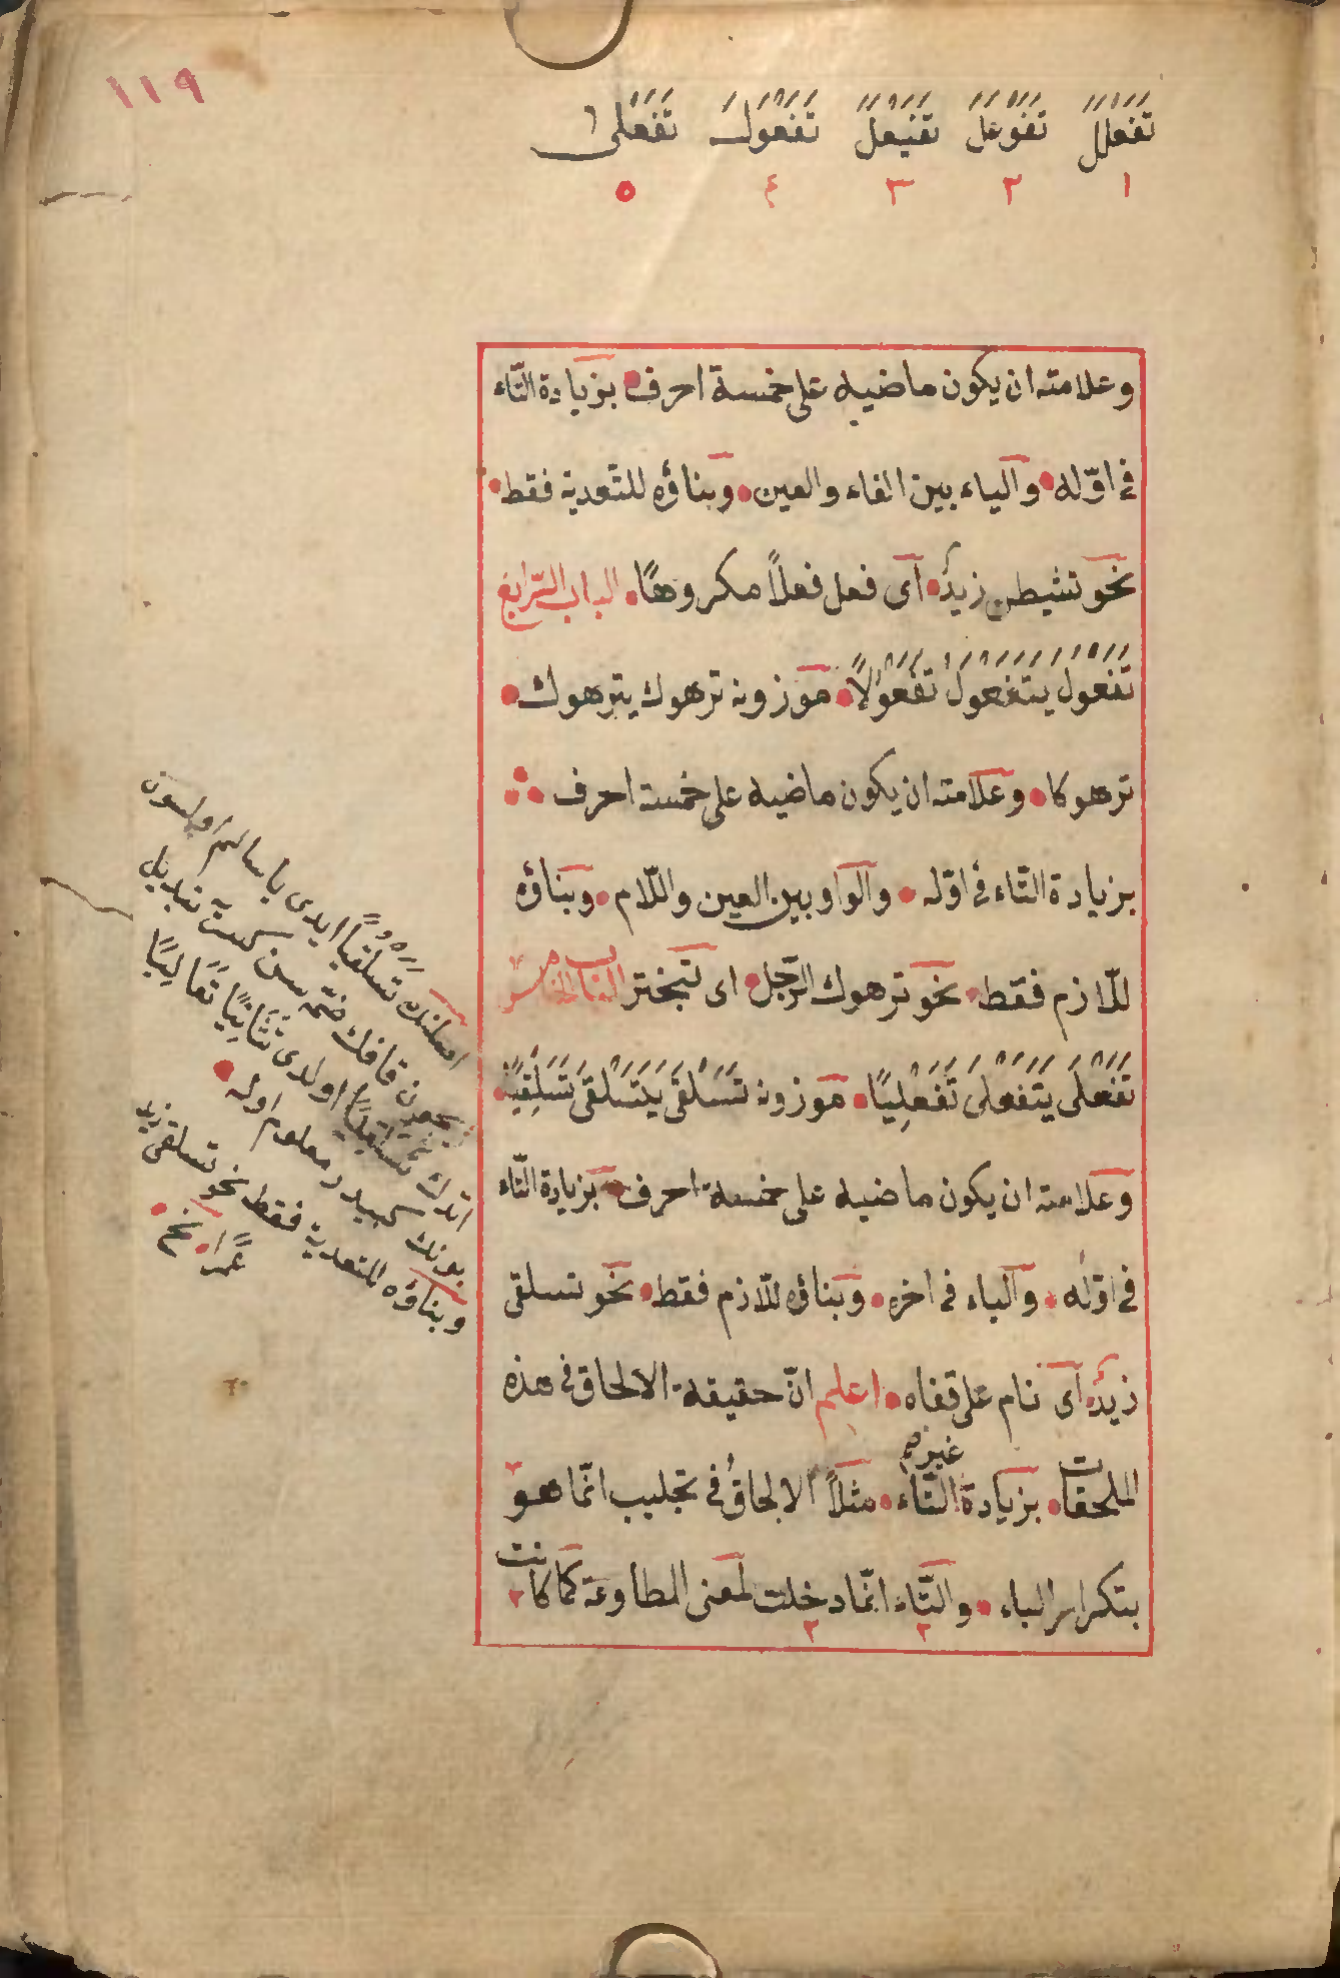 ١١٩
تَفَعْلَلَ تَفَوْعَلَ تَفَيْعَلَ تَفَعْوَلَ تَفَعْلَى
١ ٢ ٣ ٤ ٥
وعلامته ان يكون ماضيه على خمسة احرف بزيادة التّاء
فى اوّله والياء بين الفاء والعين وبناؤه للتّعدية فقط
نحو تشيطن زيدٌ اى فعل فعلاً مكروهًا الباب الرّابع
تَفَعْوَلَ يَتَفَعْوَلُ تَفَعْوُلاً موزونه ترهوك يترهوك
ترهوكا وعلامته ان يكون ماضيه على خمسة احرف
بزيادة التّاء فى اوّله والواو بين العين واللّام وبناؤه
للّازم فقط نحو ترهوك الرّجل اى تبختر الباب الخامس
تَفَعْلَى يَتَفَعْلَى تَفَعْلِيًا موزونه تَسَلْقَى يَتَسَلْقَى تَسَلْقِيًا
وعلامته ان يكون ماضيه على خمسة احرف بزيادة التّاء
فى اوّله والياء فى اخره وبناؤه للّازم فقط نحو تسلقى
زيدٌ اى نام على قفاه اعلم انّ حقيقة الالحاق فى هذه
الملحقات بزيادة غير التّاء مثلاً الالحاقُ فى تجلبب انّما هو
بتكرار الباء والتّاء انّما دخلت لمعنى المطاوعة كما كانت
اصلنك تَسَلْقُيًا ايدى يا سالم اولسون
ايچون قافك ضمّه سن كسره يه تبديل
اتدك تسلقيًا اولدى تَثَانِيًا تَعَالِيًا
بونك كبيدر معلوم اوله
وبناؤه للتعدية فقط نحو تسلقى زيد
عمرًا نخ